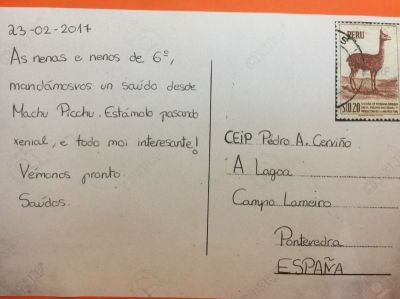 23-02-2017
As nenas e nenos de 6º,
mandámosvos un saúdo desde
Machu Picchu. Estámolo pasando
xenial, e todo moi interesante!
Vémonos pronto.
Saúdos.
PERU
S/0.20
CEIP Pedro A. Cerviño
A Lagoa
Campo Lameiro
Pontevedra
ESPAÑA